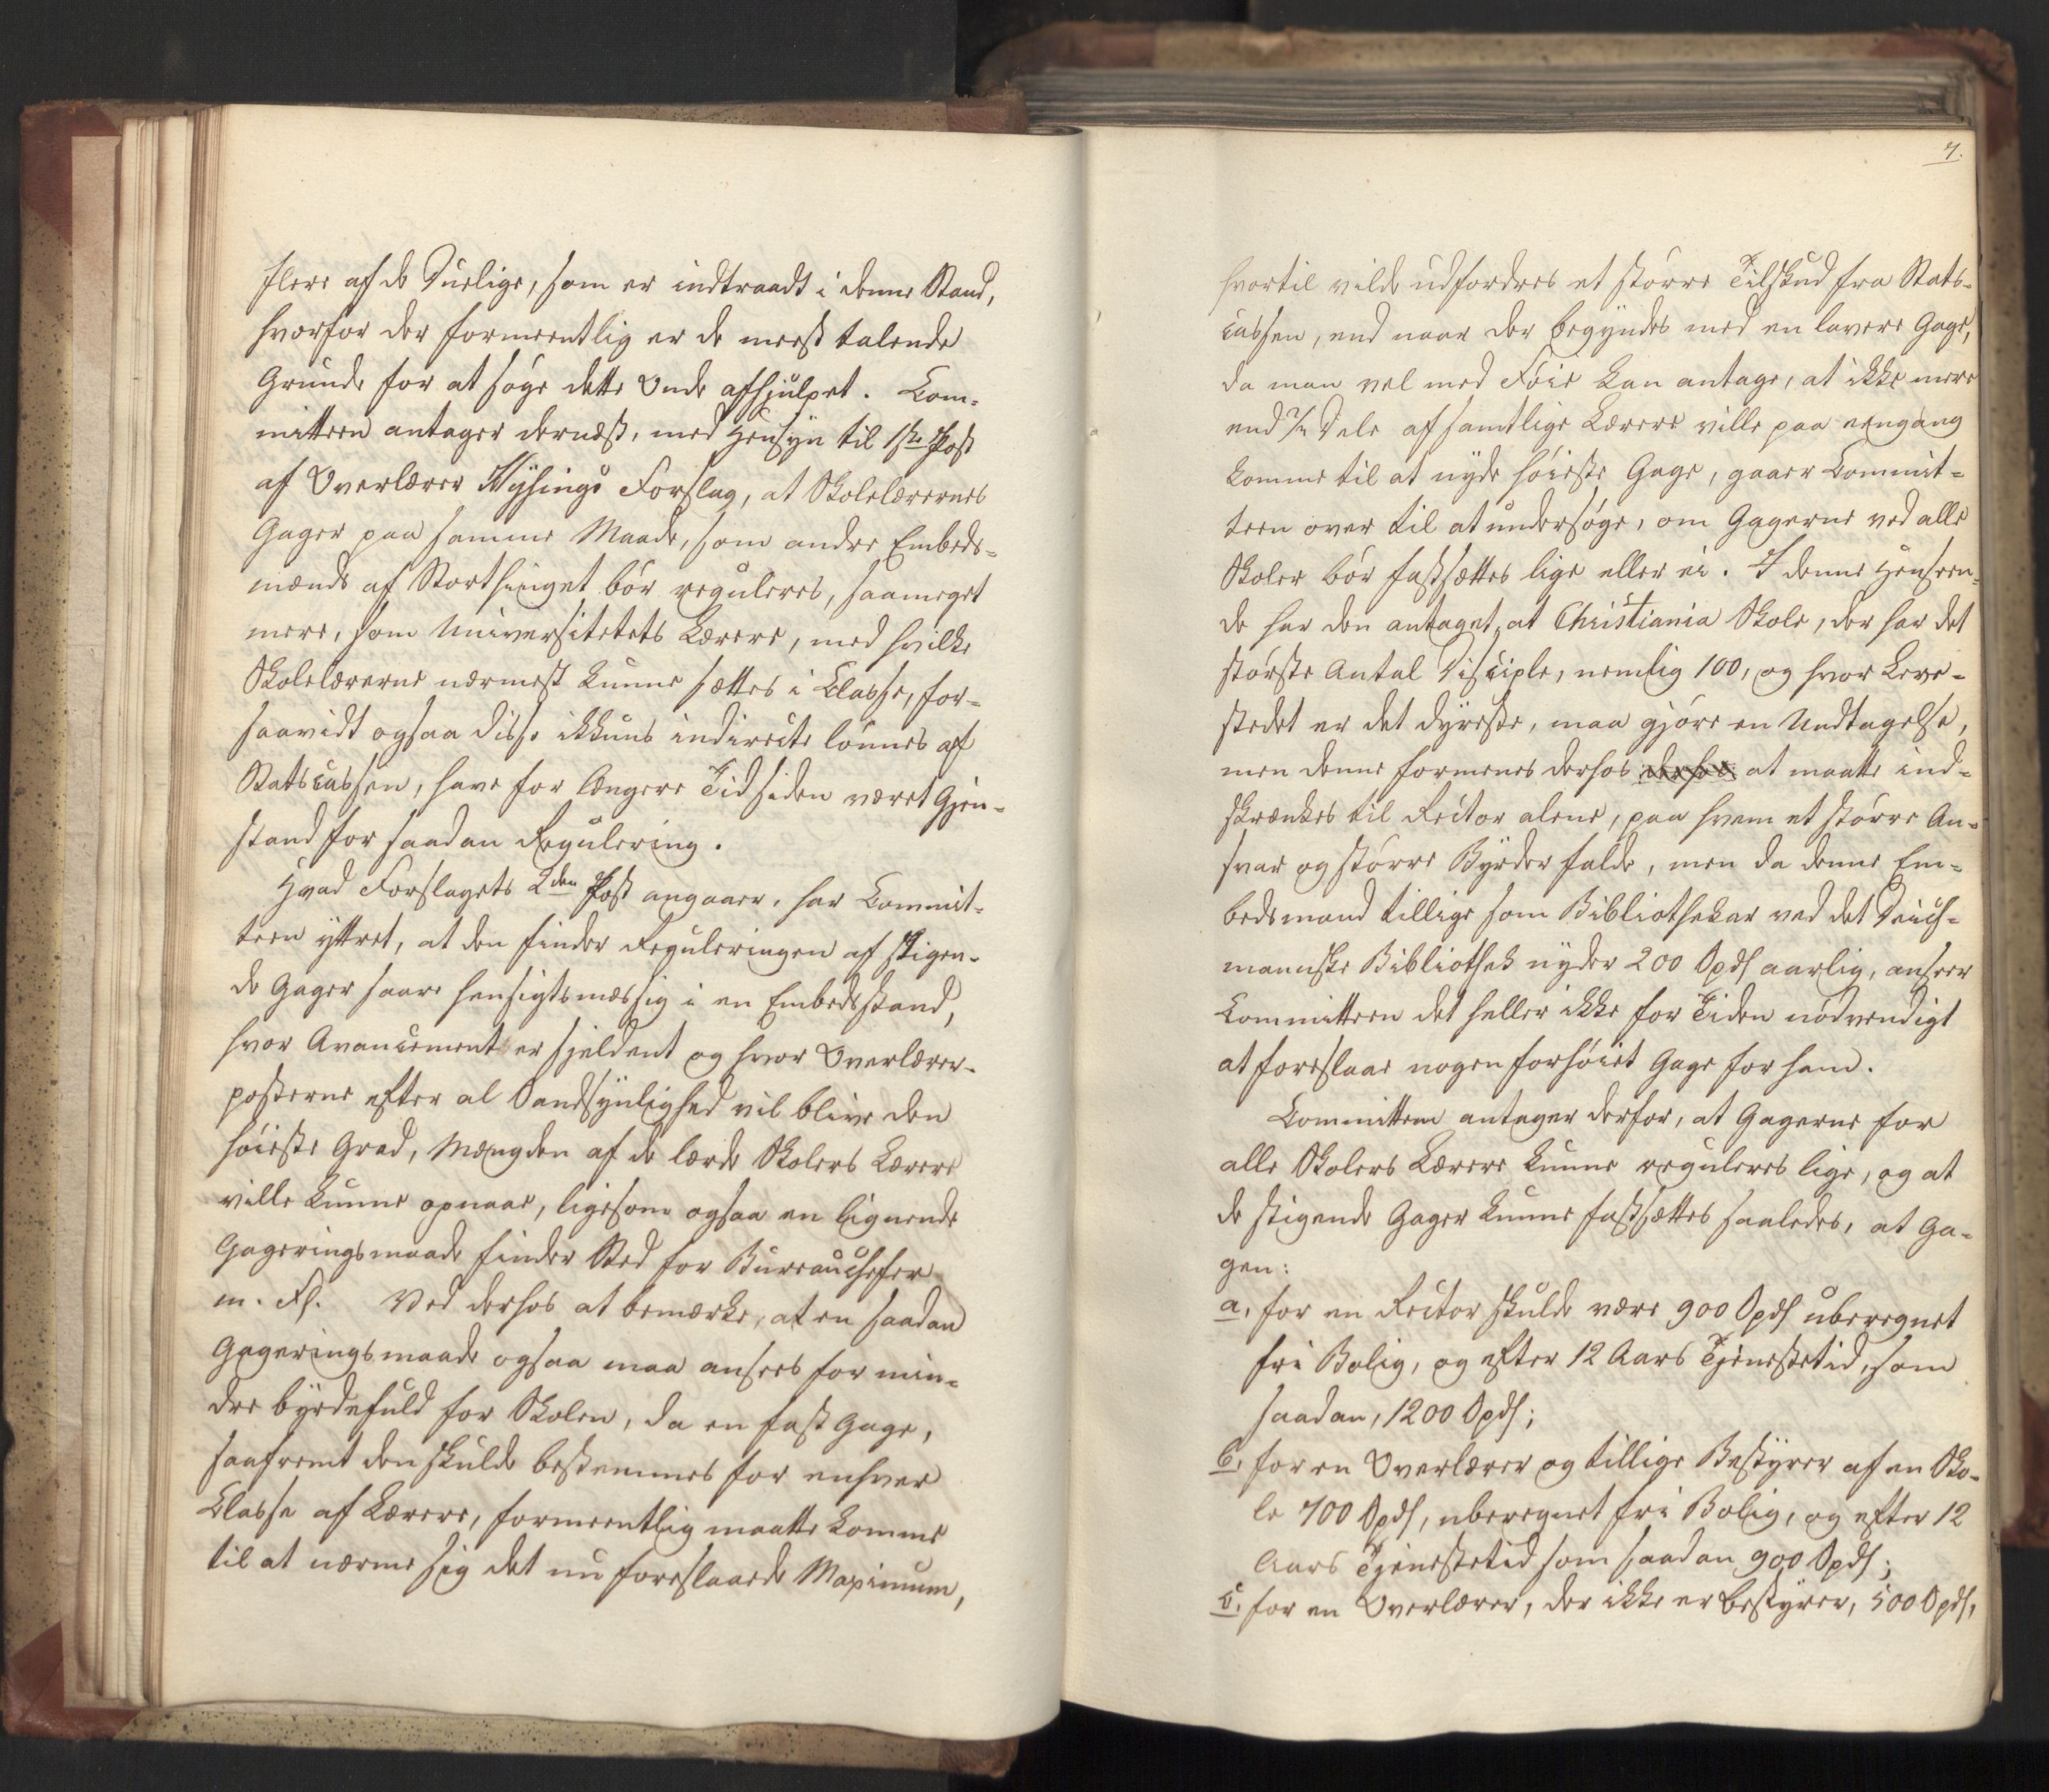 flere af de Duelige, som er indtraadt i denne Stand,
hvorfor der formeentlig er de meest talende
Grunde for at søge dette Onde afhjulpet. Com-
mitteen antager dernæst, med Hensyn til 1ste Post
af Overlærer Nysings Forslag, at Skolelærernes
Gager paa samme Maade, som andre Embeds-
mænds af Storthinget bør reguleres, saameget
mere, som Universitetets Lærere, med hvilke
Skolelærerne nærmest kunne sættes i Classe, for-
saavidt ogsaa disse ikkuns indirecte lønnes af
Statscassen, have for længere Tid siden været Gjen-
stand for saadan Regulering.
Hvad Forslagets 2den Post angaaer, har Commit-
teen yttret, at den finder Reguleringen af stigen-
de Gager saare hensigtsmæssig i en Embedsstand,
hvor Avancement er sjeldent og hvor Overlærer-
posterne efter al Sandsynlighed vil blive den
høieste Grad, Mængden af de lærde Skolers Lærere
ville kunne opnaae, ligesom ogsaa en lignende
Gageringsmaade finder Sted for Bureauchefer
m. Fl. Ved derhos at bemærke, at en saadan
Gageringsmaade ogsaa maa ansees for min-
dre byrdefuld for Skolen, da en fast Gage,
saafremt den skulde bestemmes for enhver
Classe af Lærere, formeentlig maatte komme
til at nærme sig det nu foreslaaede Maximum,
7.
hvortil vilde udfordres et større Tilskud fra Stats-
cassen, end naar der begyndes med en lavere Gage,
da man vel med Føie kan antage, at ikke mere
end Dele af samtlige Lærere ville paa eengang
komme til at nyde høieste Gage, gaaer Commit-
teen over til at undersøge, om Gagerne ved alle
Skoler bør fastsættes lige eller ei. I denne Henseen-
de har den antaget, at Christiania Skole, der har det
største Antal Disciple, nemlig 100, og hvor Leve-
stedet er det dyreste, maa gjøre en Undtagelse,
men denne formenes derhos derhos at maatte ind-
skrænkes til Rector alene, paa hvem et større An-
svar og større Byrder falde, men da denne Em-
bedsmand tillige som Bibliothekar ved det Deich-
mannske Bibliothek nyder 200 Spdl aarlig, anseer
Committeen det heller ikke for Tiden nødvendigt
at foreslaae nogen forhøiet Gage for ham.
Committeen antager derfor, at Gagerne for
alle Skolers Lærere kunne reguleres lige, og at
de stigende Gager kunne fastsættes saaledes, at Ga-
gen:
a, for en Rector skulde være 900 Spdl uberegnet
fri Bolig, og efter 12 Aars Tjenestetid, som
saadan, 1200 Spdl;
b, for en Overlærer og tillige Bestyrer af en Sko-
le 700 Spdl, uberegnet fri Bolig, og efter 12
Aars Tjenestetid som saadan 900 Spdl;
c, for en Overlærer, der ikke er Bestyrer, 500 Spdl,